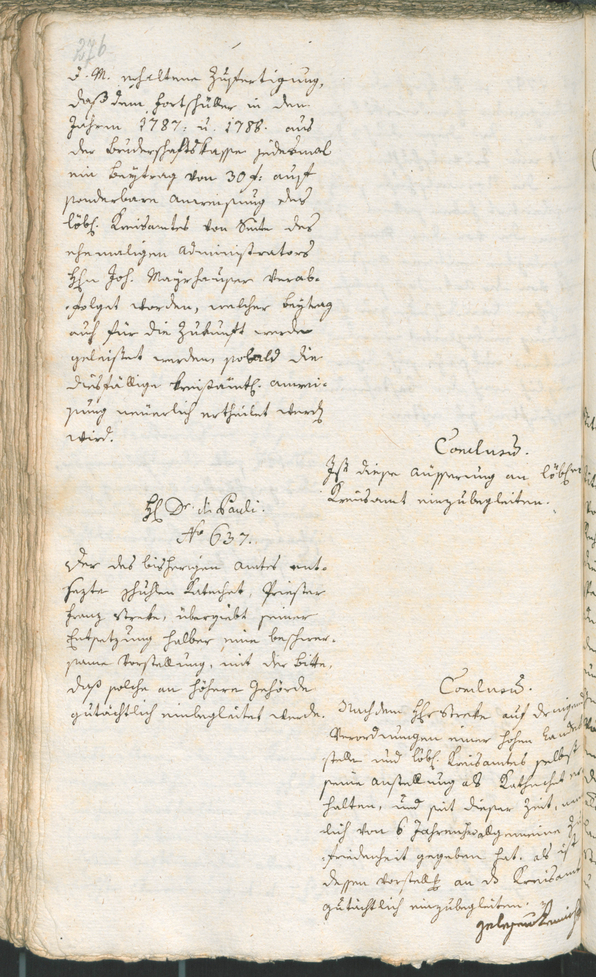 276
d. M. erhaltene Zufertigung,
daß dem Fortschüller in den
Jahren 1787: u. 1788. aus
der Bruderschaftskasse jedesmal
ein Beytrag von 30 f: auf
sonderbare Anweisung des
löbl. Kreisamtes von Seite des
ehemaligen Administrators
Hhn Joh. Mayrhauser verab-
folget worden, welcher Beytrag
auch für die Zukunft werde
geleistet werden, sobald die
dießfällige kreisämtl. Anwei-
sung neuerlich ertheilet werdn
wird.
Conclusum.
Ist diese Aüsserung an löbl.
Kreisamt einzubegleiten.
H. Dr. di Pauli.
No 637.
Der des bisherigen Amtes ent-
sezte Schullen Katechet, Priester
Franz Streke, übergiebt seiner
Entsetzung halber eine beschwer-
same Vorstellung, mit der Bitte,
daß solche an höhere Gehörde
gutächtlich einbegleitet werde.
Conclusum.
Nachdem Hhr Streke auf
Verordnungen einer hohen Landes
stelle und löbl. Kreisamtes selbst
seine Anstellung als Kathechet
halten, und seit dieser Zeit,
lich von 6 Jahren allgemeine
friedenheit gegeben hat. als ist
dessen Vorstellg an ds Kreisamt
gutächtlich einzubegleiten.